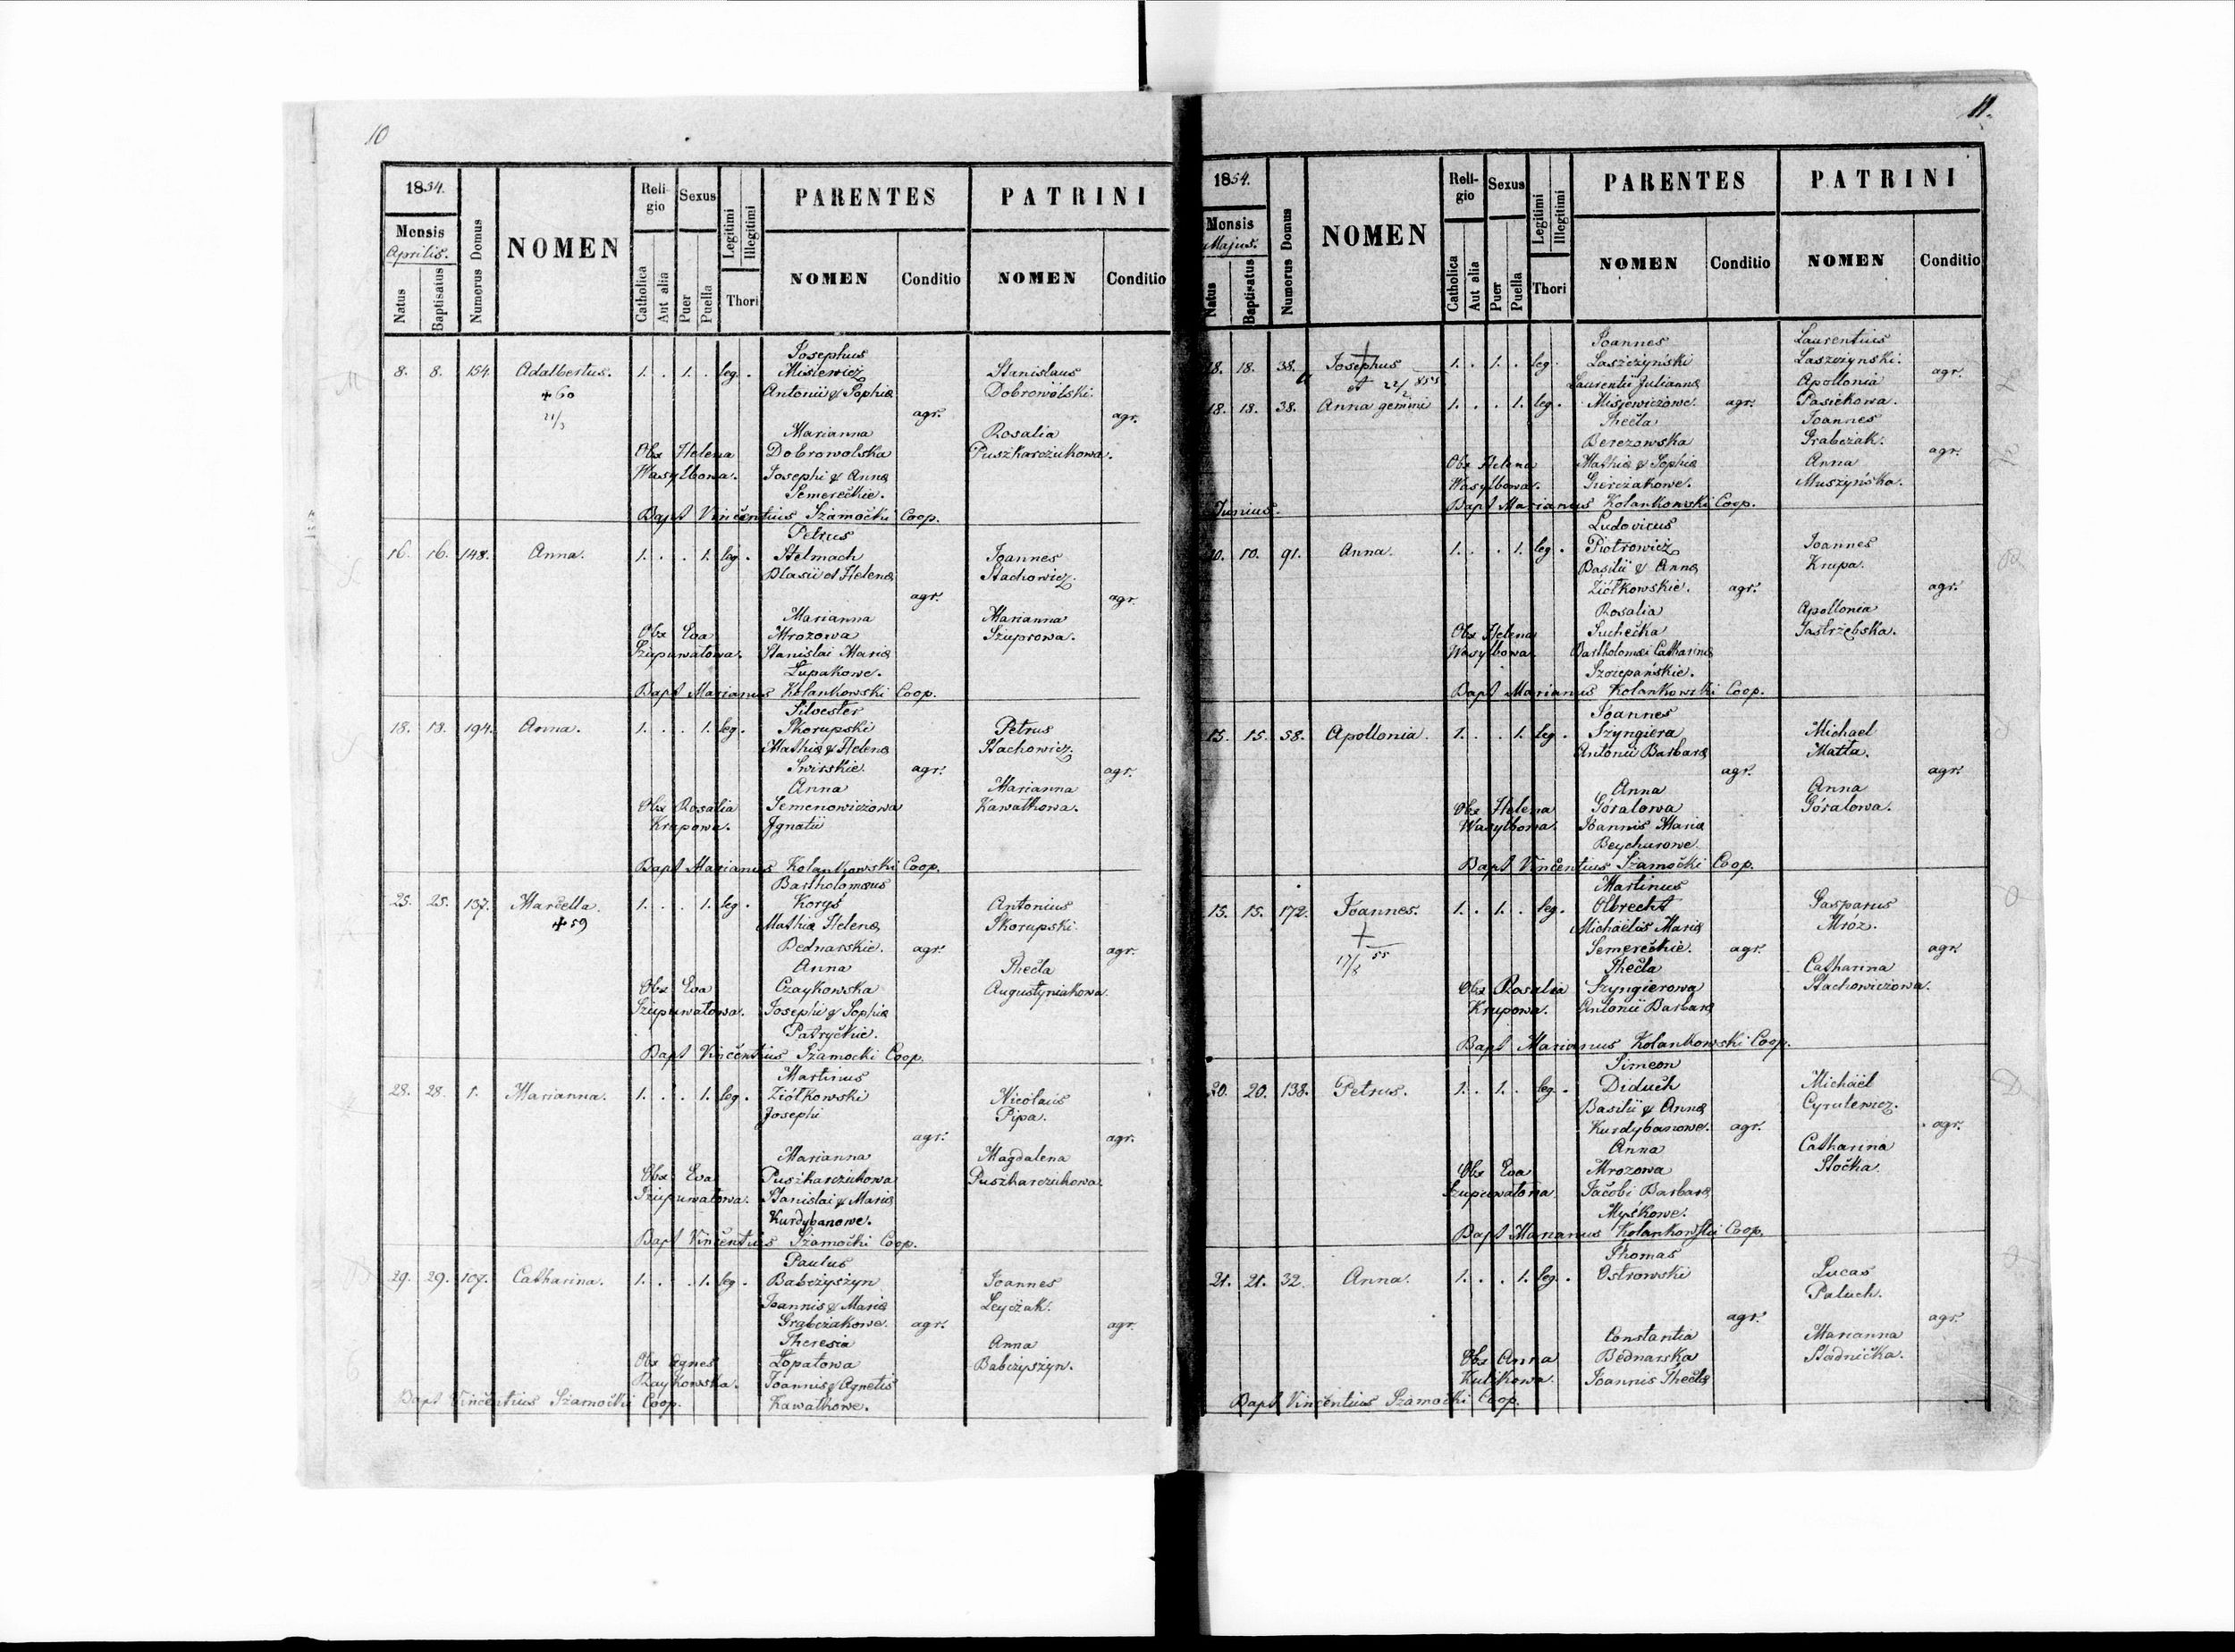 10
1854.
Mensis
Aprilis.
Natus
Baptisatus
Numerus Domus
NOMEN
Religio
Catholica
Aut alia
Sexus
Puer
Puella
Legitimi
Illegitimi
Thori
PARENTES
NOMEN
Conditio
PATRINI
NOMEN
Conditio
Josephus
8. 8. 154. Adalbertus. 1. . 1. . leg. . Misiewicz Stanislaus
+ 60 Antonii & Sophiæ Dobrowolski.
21/3 agr. agr.
Marianna Rosalia
Obx Helena Dobrowolska Puszkarczukowa.
Wasylbowa. Josephi & Annæ
Semereckie.
Bapt Vincentius Szamocki Coop.
Petrus
16. 16. 148. Anna. 1. . . 1. leg . Stelmach Joannes
Blasii et Helenæ Stachowicz.
agr. agr
Marianna Marianna
Obx Eva Mrozowa Szuprowa.
Szupuwatowa. Stanislai Mariæ
Łupakowe.
Bapt Marianus Kolankowski Coop.
Silvester
18. 18. 194. Anna. 1. . . 1. leg . Skorupski Petrus
Mathiæ & Helenæ Stachowicz
Swirskie. agr. agr.
Anna Marianna
Obx Rosalia Semenowiczowa Kawalkowa.
Krupowa. Ignatii
Bapt Marianus Kolankowski Coop.
Bartholomæus
25. 25. 137. Marcella. 1. . . 1. leg . Koryś Antonius
+ 59 Mathiæ Helenæ Skorupski.
Bednarskie. agr. agr.
Anna Thecla
Obx Eva Czaykowska Augustyniakowa.
Szupuwatowa. Josephi & Sophiæ
Patryckie.
Bapt Vincentius Szamocki Coop.
Martinus
28. 28. 1. Marianna. 1. . . 1. leg . Ziółkowski Nicolaus
Josephi Pipa.
agr. agr.
Marianna Magdalena
Obx Eva Puszkarczukowa Puszkarczukowa.
Szupuwatowa. Stanislai & Mariæ
Kurdybanowe.
Bapt Vincentius Szamocki Coop.
Paulus
29. 29. 107. Catharina. 1. . . 1. leg . Babczyszyn Joannes
Joannis & Mariæ Leyczak.
Grabczakowe. agr. agr.
Theresia Anna
Obx Agnes Łopatowa Babczyszyn.
Czaykowska. Joannis & Agnetis
Bapt Vincentius Szamocki Coop. Kawalkowe.
11.
1854.
Mensis
Majus.
Natus
Baptisatus
Numerus Domus
NOMEN
Religio
Catholica
Aut alia
Sexus
Puer
Puella
Legitimi
Illegitimi
Thori
PARENTES
NOMEN
Conditio
PATRINI
NOMEN
Conditio
Joannes Laurentius
18. 18. 38. Josephus 1. . 1. . leg. Laszczyński Laszczynski.
et 22/2 855 Laurentii Juliannæ Apollonia agr.
18. 18. 38. Anna gemini 1. . . 1. leg . Misiewiczowe. agr. Pasiekowa.
Thecla Joannes
Berezowska Grabczak.
Obx Helena Mathiæ & Sophiæ Anna agr.
Wasylbowa. Gierczakowe. Muszyńska.
Junius. Bapt Marianus Kolankowski Coop.
Ludovicus
10. 10. 91. Anna. 1. . . 1. leg . Piotrowicz Joannes
Basilii & Annæ Krupa.
Ziółkowskie. agr. agr.
Rosalia Apollonia
Obx Helena Suchecka Jastrzębska.
Wasylbowa. Bartholomæi Catharinæ
Szczepańskie.
Bapt Marianus Kolankowski Coop.
Joannes
15. 15. 58. Apollonia. 1. . . 1. leg . Szyngiera Michael
Antonii Barbaræ Matła.
agr. agr.
Anna Anna
Obx Helena Góralowa Góralowa.
Wasylbowa. Joannis Mariæ
Beychurowe.
Bapt Vincentius Szamocki Coop.
Martinus
15. 15. 172. Joannes. 1. . 1. . leg. Olbrecht Gasparus
+ Michaelis Mariæ Mróz.
17/8 55 Semereckie. agr. agr.
Thecla Catharina
Obx Rosalia Szyngierowa Stachowiczowa.
Krupowa. Antonii Barbaræ
Bapt Marianus Kolankowski Coop.
Simeon
20. 20. 138. Petrus. 1. . 1. . leg. . Diduch Michaël
Basilii & Annæ Cyrulewicz.
Kurdybanowe. agr. agr.
Anna Catharina
Obx Eva Mrozowa Słocka.
Szupuwatowa. Jacobi Barbaræ
Myśkowe.
Bapt Marianus Kolankowski Coop.
Thomas
21. 21. 32. Anna. 1. . . 1. leg. . Ostrowski Lucas
Paluch.
agr. agr.
Constantia Marianna
Obx Anna Bednarska Stadnicka.
Kulikowa. Joannis Theclæ
Bapt Vincentius Szamocki Coop.